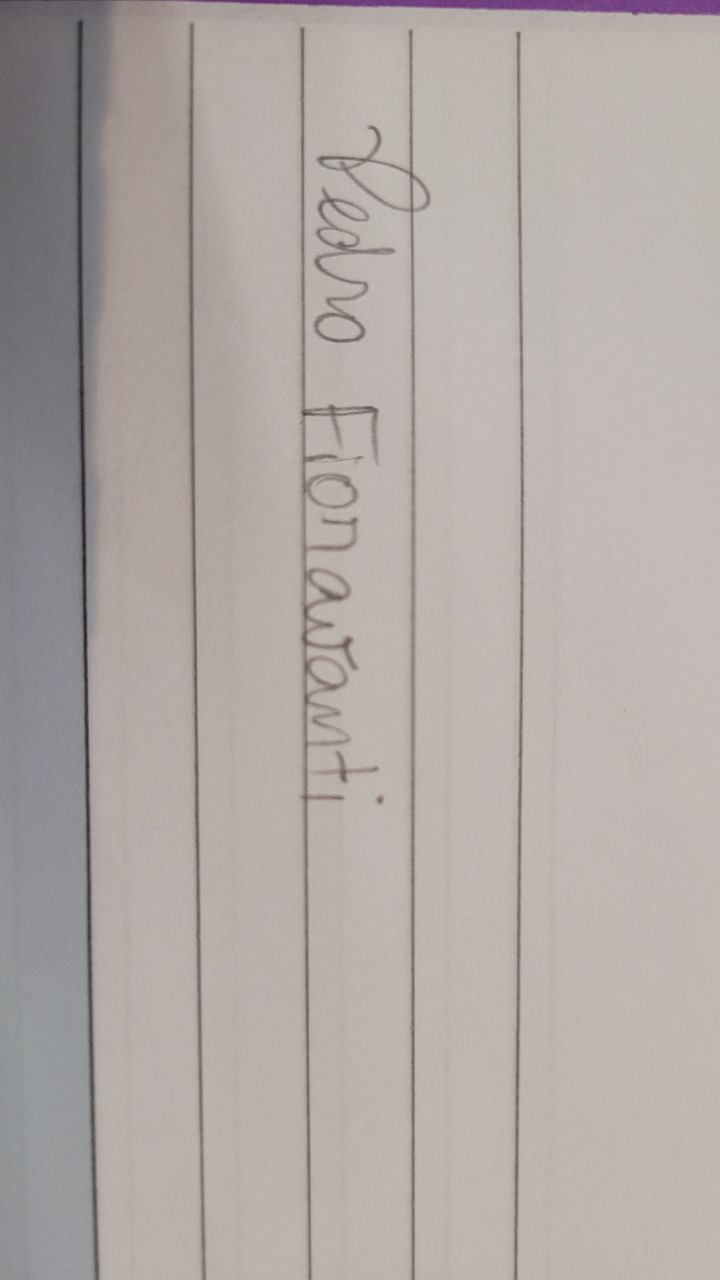 Pedro Fionavanti